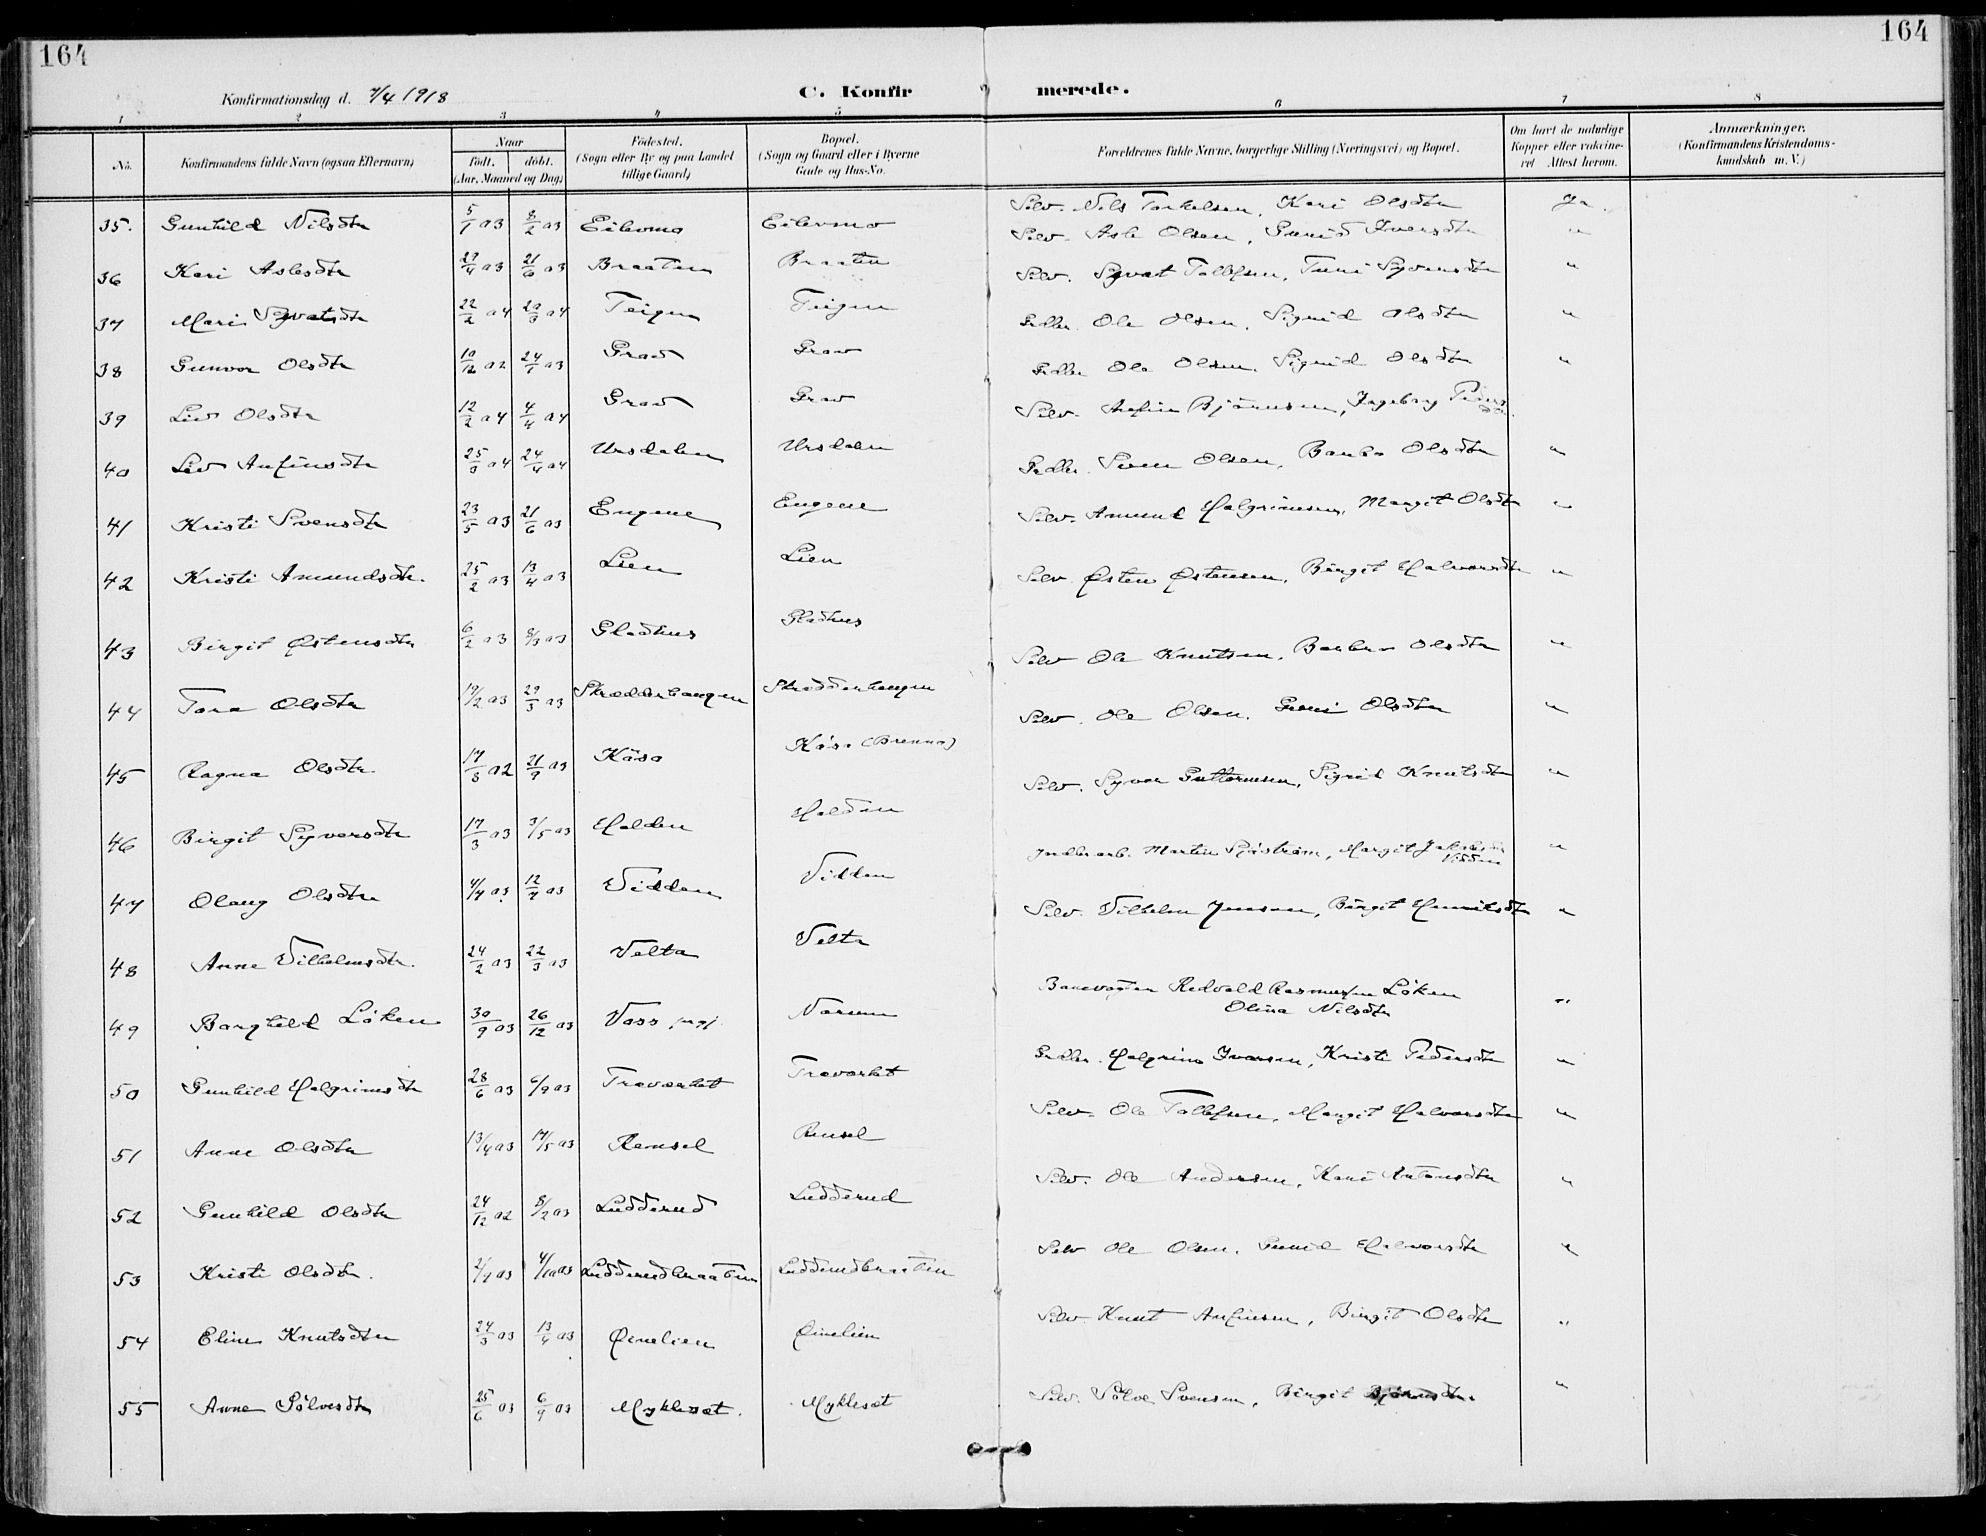 164
164
Konfirmationsdag d. 7/4 1918
C. Konfirmerede.
1 2 3 4 5 6 7 8
No.
Konfirmandens fulde Navn (ogsaa Efternavn)
Naar
født. døbt.
(Aar, Maaned og Dag)
Fødested.
(Sogn eller By og paa Landet
tillige Gaard)
Bopæl.
(Sogn og Gaard eller i Byerne
Gade og Hus-No.
Forældrenes fulde Navne, borgerlige Stilling (Næringsvei) og Bopæl.
Om havt de naturlige
Kopper eller vakcine-
ret Attest herom.
Anmærkninger.
(Konfirmandens Kristendoms-
kundskab m. V.)
35. Gunhild Nilsdtr 5/1 03 8/2 03 Eilevmo Eilevmo Selv. Nils Torkelsen, Kari Olsdtr Ja.
36 Kari Aslesdtr 03 21/6 03 Braaten Braaten Selv. Asle Olsen, Gunild Iversdtr "
37 Mari Sygvatsdtr 22/2 04 04 Teigen Teigen Selv. Sygvat Tollefsen, Turi Syversdtr "
38 Gunvor Olsdtr 10/12 02 24/1 03 Grav Grav Pedler. Ole Olsen, Sigrid Olsdtr "
39 Liv Olsdtr 12/2 04 4/4 04 Grav Grav Ole Olsen, Sigrid Olsdtr "
40 Liv Anfinsdtr 25/3 04 24/4 04 Ursdalen Ursdalen Selv. Anfin Björnsen, Ingeborg Pedersdtr.
41 Kristi Svensdtr 23/5 03 21/6 03 Engene Engene Sven Olsen, Barbro Olsdtr "
42 Kristi Amundsdtr. 25/2 03 13/4 03 Lien Lien Selv. Amund Halgrimsen, Margit Olsdtr "
43 Birgit Østensdtr 6/2 03 8/3 03 Gladhus Gladhus Selv Østen Østensen, Birgit Halvorsdtr "
44 Tora Olsdtr 19/2 03 29/3 03 Skrædderhaugen Skrædderhaugen Selv Ole Knutsen, Barbro Olsdtr "
45 Ragna Olsdtr. 02 03 Kåsa Kåsa (Brenna) Selv. Ole Olsen, Olsdtr "
46 Birgit Syversdtr 17/3 03 3/5 03 Halden Halden Selv. Syver Guttormsen, Sigrid Knutsdtr "
47 Olaug Olsdtr 03 12/7 03 Vidden Vidden Martin Sjöström, Margit Vidden "
48 Anne Vilhelmsdtr. 24/2 03 22/3 03 Velta Velta Selv. Vilhelm Jensen, Birgit Henriksdtr "
49 Borghild Løken 30/9 03 26/12 03 Voss Norum Banevogter Redvald Rasmussen Løken
Olina Nilsdtr "
50 Gunhild Halgrimsdtr 28/6 03 6/9 03 Trævarket Trævarket Halgrim Iversen, Kristi Pedersdtr "
51 Anne Olsdtr 13/4 03 17/5 03 Rensel Rensel Selv. Ole Tollefsen, Margit Halvorsdtr "
52 Gunhild Olsdtr 24/12 02 8/2 03 Ludderud Ludderud Selv. Ole Andersen, Kari Antonsdtr "
53 Kristi Olsdtr. 03 4/10 03 Ludderudbraaten Ludderudbraaten Selv Ole Olsen, Gunild Halvorsdtr "
54 Eline Knutsdtr 24/3 03 13/4 03 Øinelien Øinelien Selv Knut Anfinsen, Birgit Olsdtr "
55 Anne Sølvesdtr 25/6 03 6/9 03 Myklesæt. Myklesæt Selv. Sölve Svensen, Birgit Bjørnsdtr. "